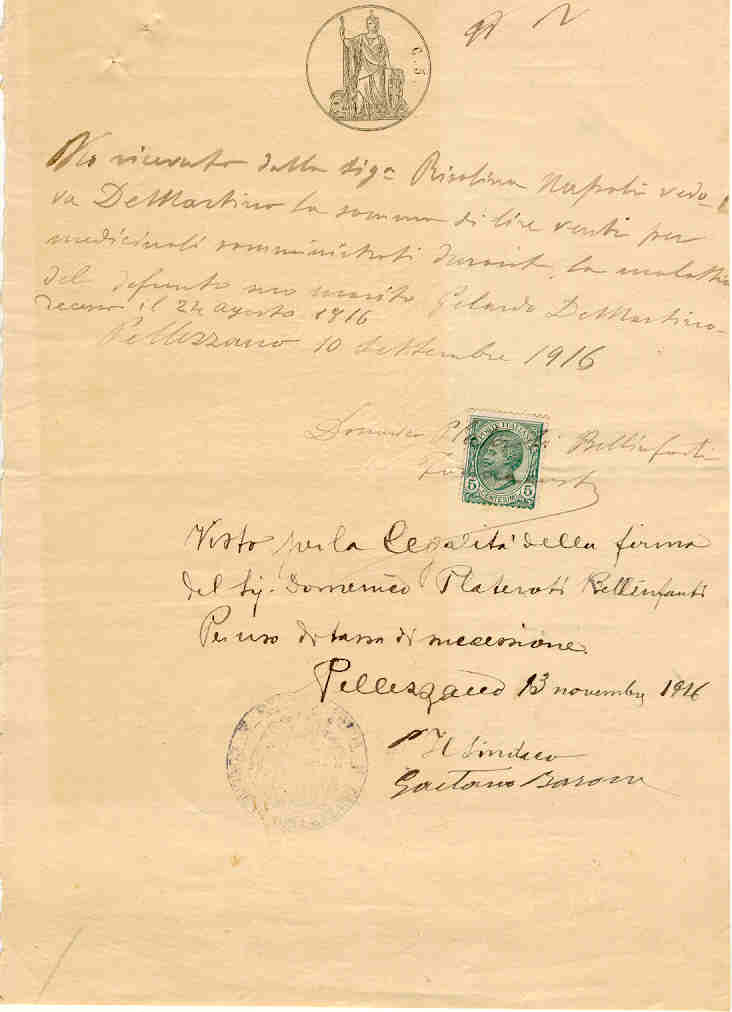 C. 5.
Ho ricevuto dalla Sigª Risolina Napoli vedo-
va DeMartino la somma di lire venti per
medicinali somministrati durante la malattia
del defunto suo marito Gelardo DeMartino-
decesso il 24 agosto 1916
Pellezzano 10 Settembre 1916
Domenico Bellinfanti
POSTE ITALIANE
5 5
CENTESIMI
Visto per la legalità della firma
del Sig. Domenico Plateroti Bellinfanti
Per uso di tassa di successione.
Pellezzano 13 novembre 1916
Il Sindaco
Gaetano Barone